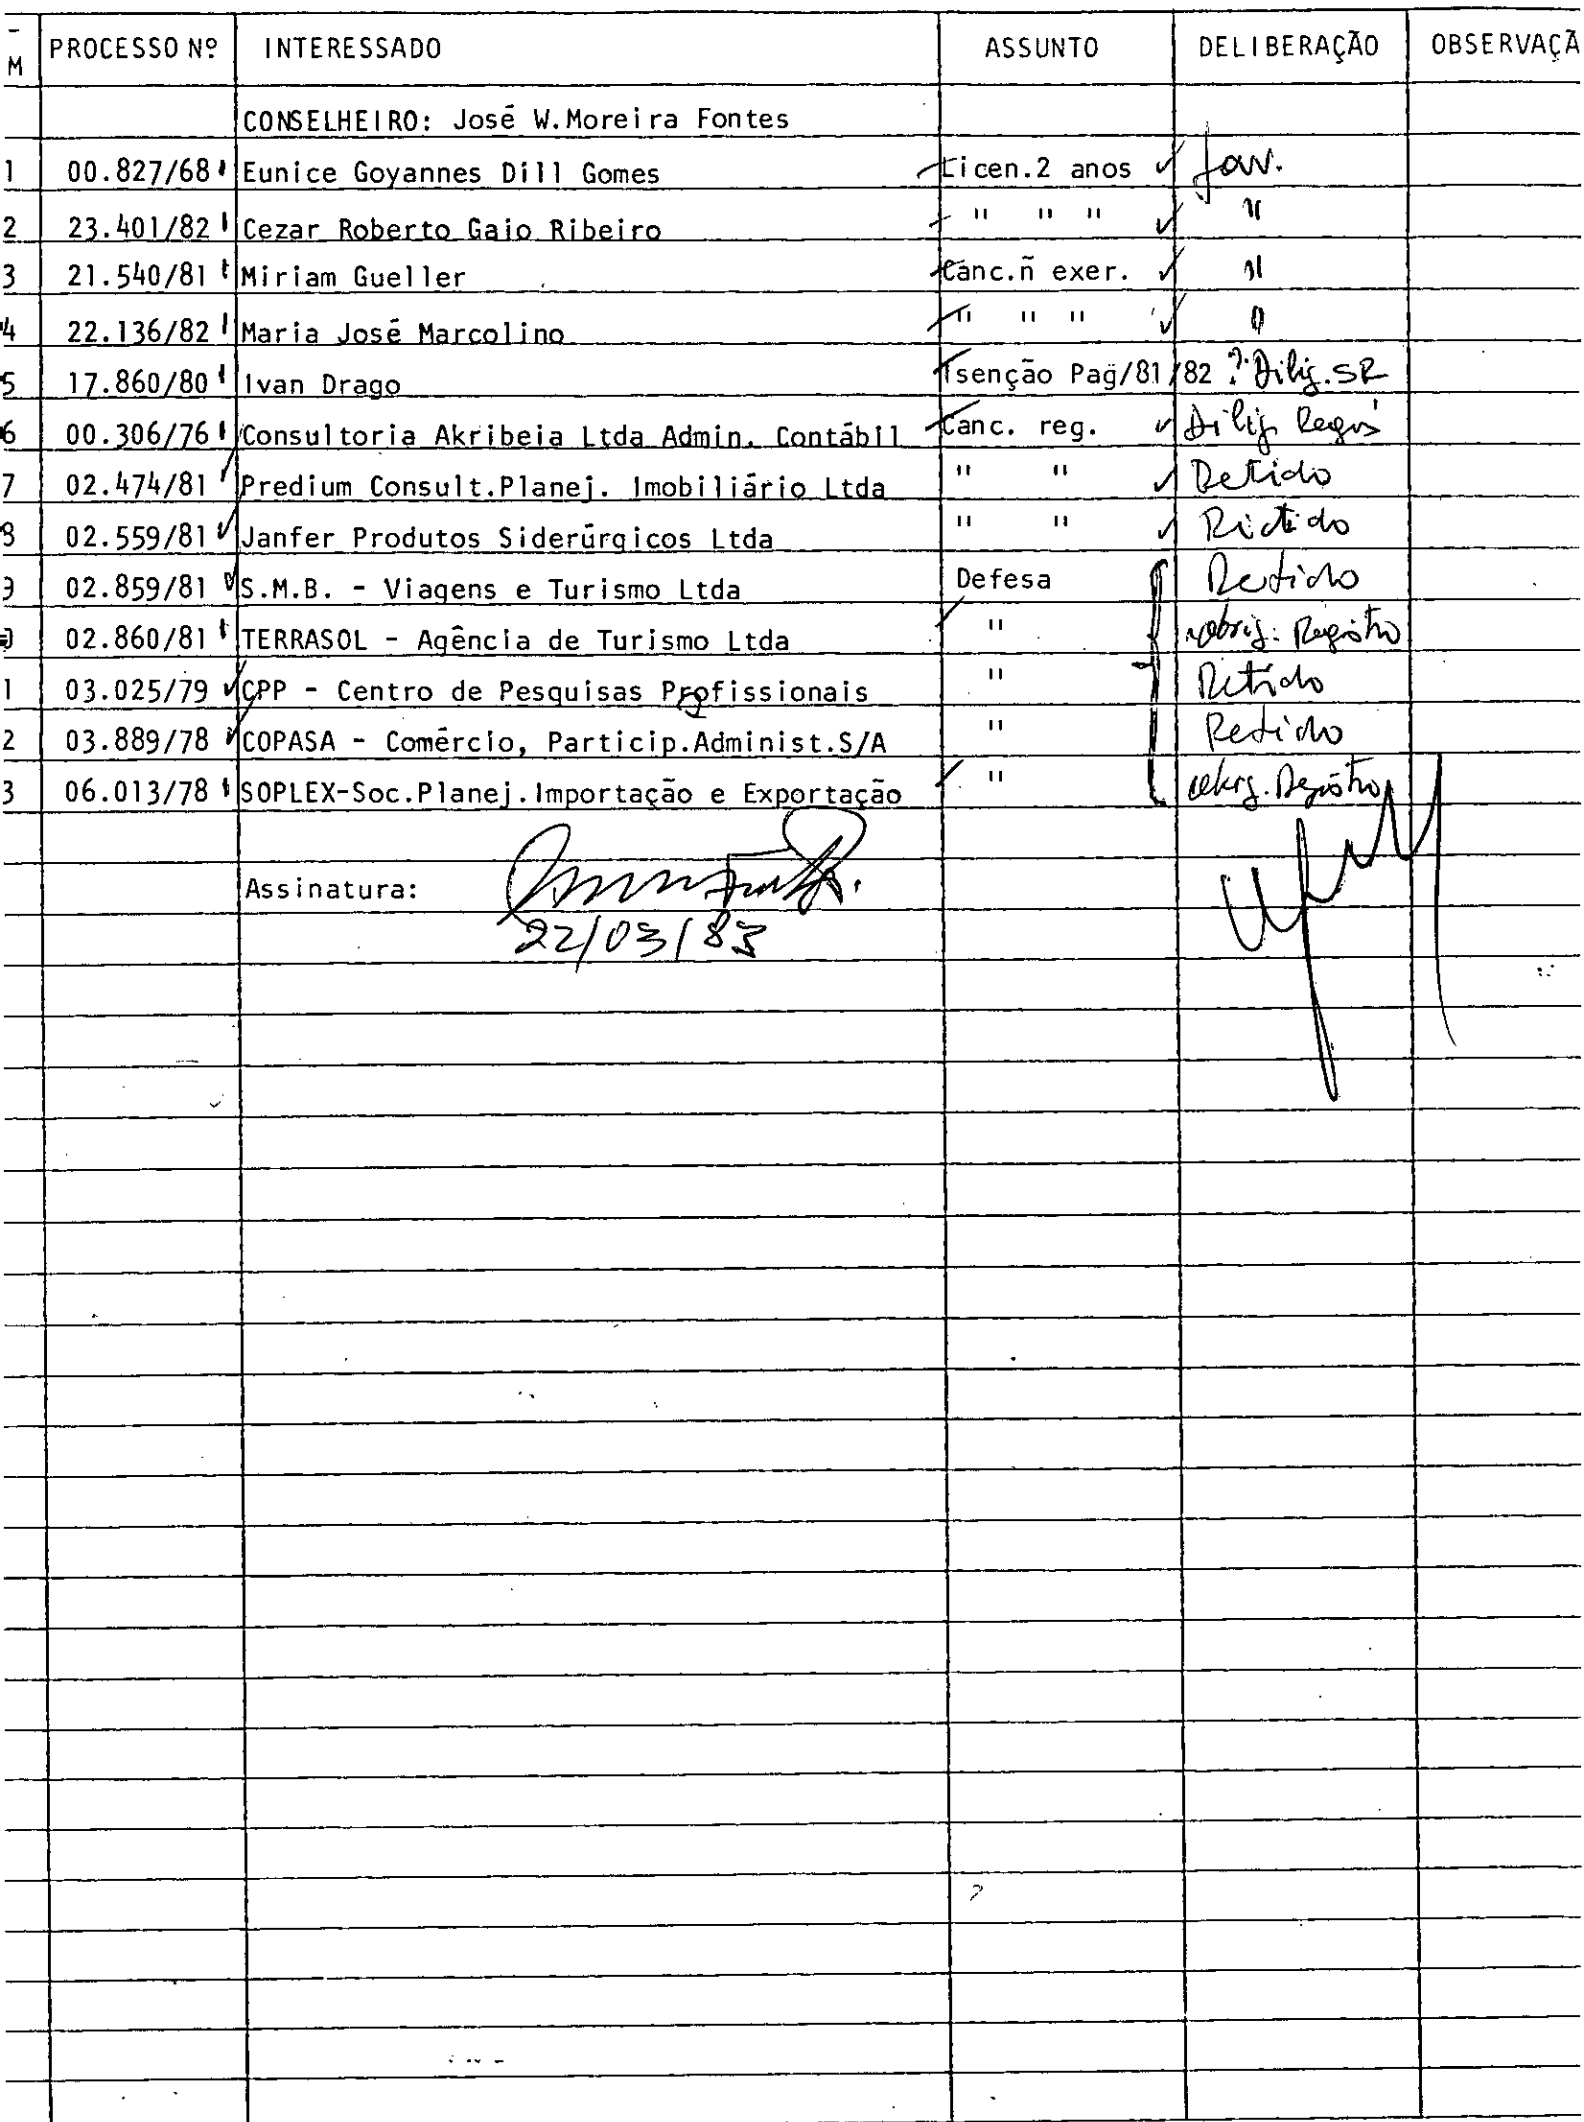 - M PROCESSO Nº INTERESSADO ASSUNTO DELIBERAÇÃO OBSERVAÇÃ
CONSELHEIRO: José W.Moreira Fontes
1 00.827/68 Eunice Goyannes Dill Gomes Licen.2 anos fav.
2 23.401/82 Cezar Roberto Gaio Ribeiro " " " "
3 21.540/81 Miriam Gueller Canc.ñ exer. "
4 22.136/82 Maria José Marcolino " " " "
5 17.860/80 Ivan Drago Isenção Pag/81/82 ? Dilig. SR
6 00.306/76 Consultoria Akribeia Ltda Admin. Contábil Canc. reg. Dilig.
7 02.474/81 Predium Consult.Planej. Imobiliário Ltda " " Retido
8 02.559/81 Janfer Produtos Siderúrgicos Ltda " " Retido
9 02.859/81 S.M.B. - Viagens e Turismo Ltda Defesa Retido
0 02.860/81 TERRASOL - Agência de Turismo Ltda " Registro
1 03.025/79 CPP - Centro de Pesquisas Profissionais " Retido
2 03.889/78 COPASA - Comércio, Particip.Administ.S/A " Retido
3 06.013/78 SOPLEX-Soc.Planej.Importação e Exportação " Registro
Assinatura:
22/03/83